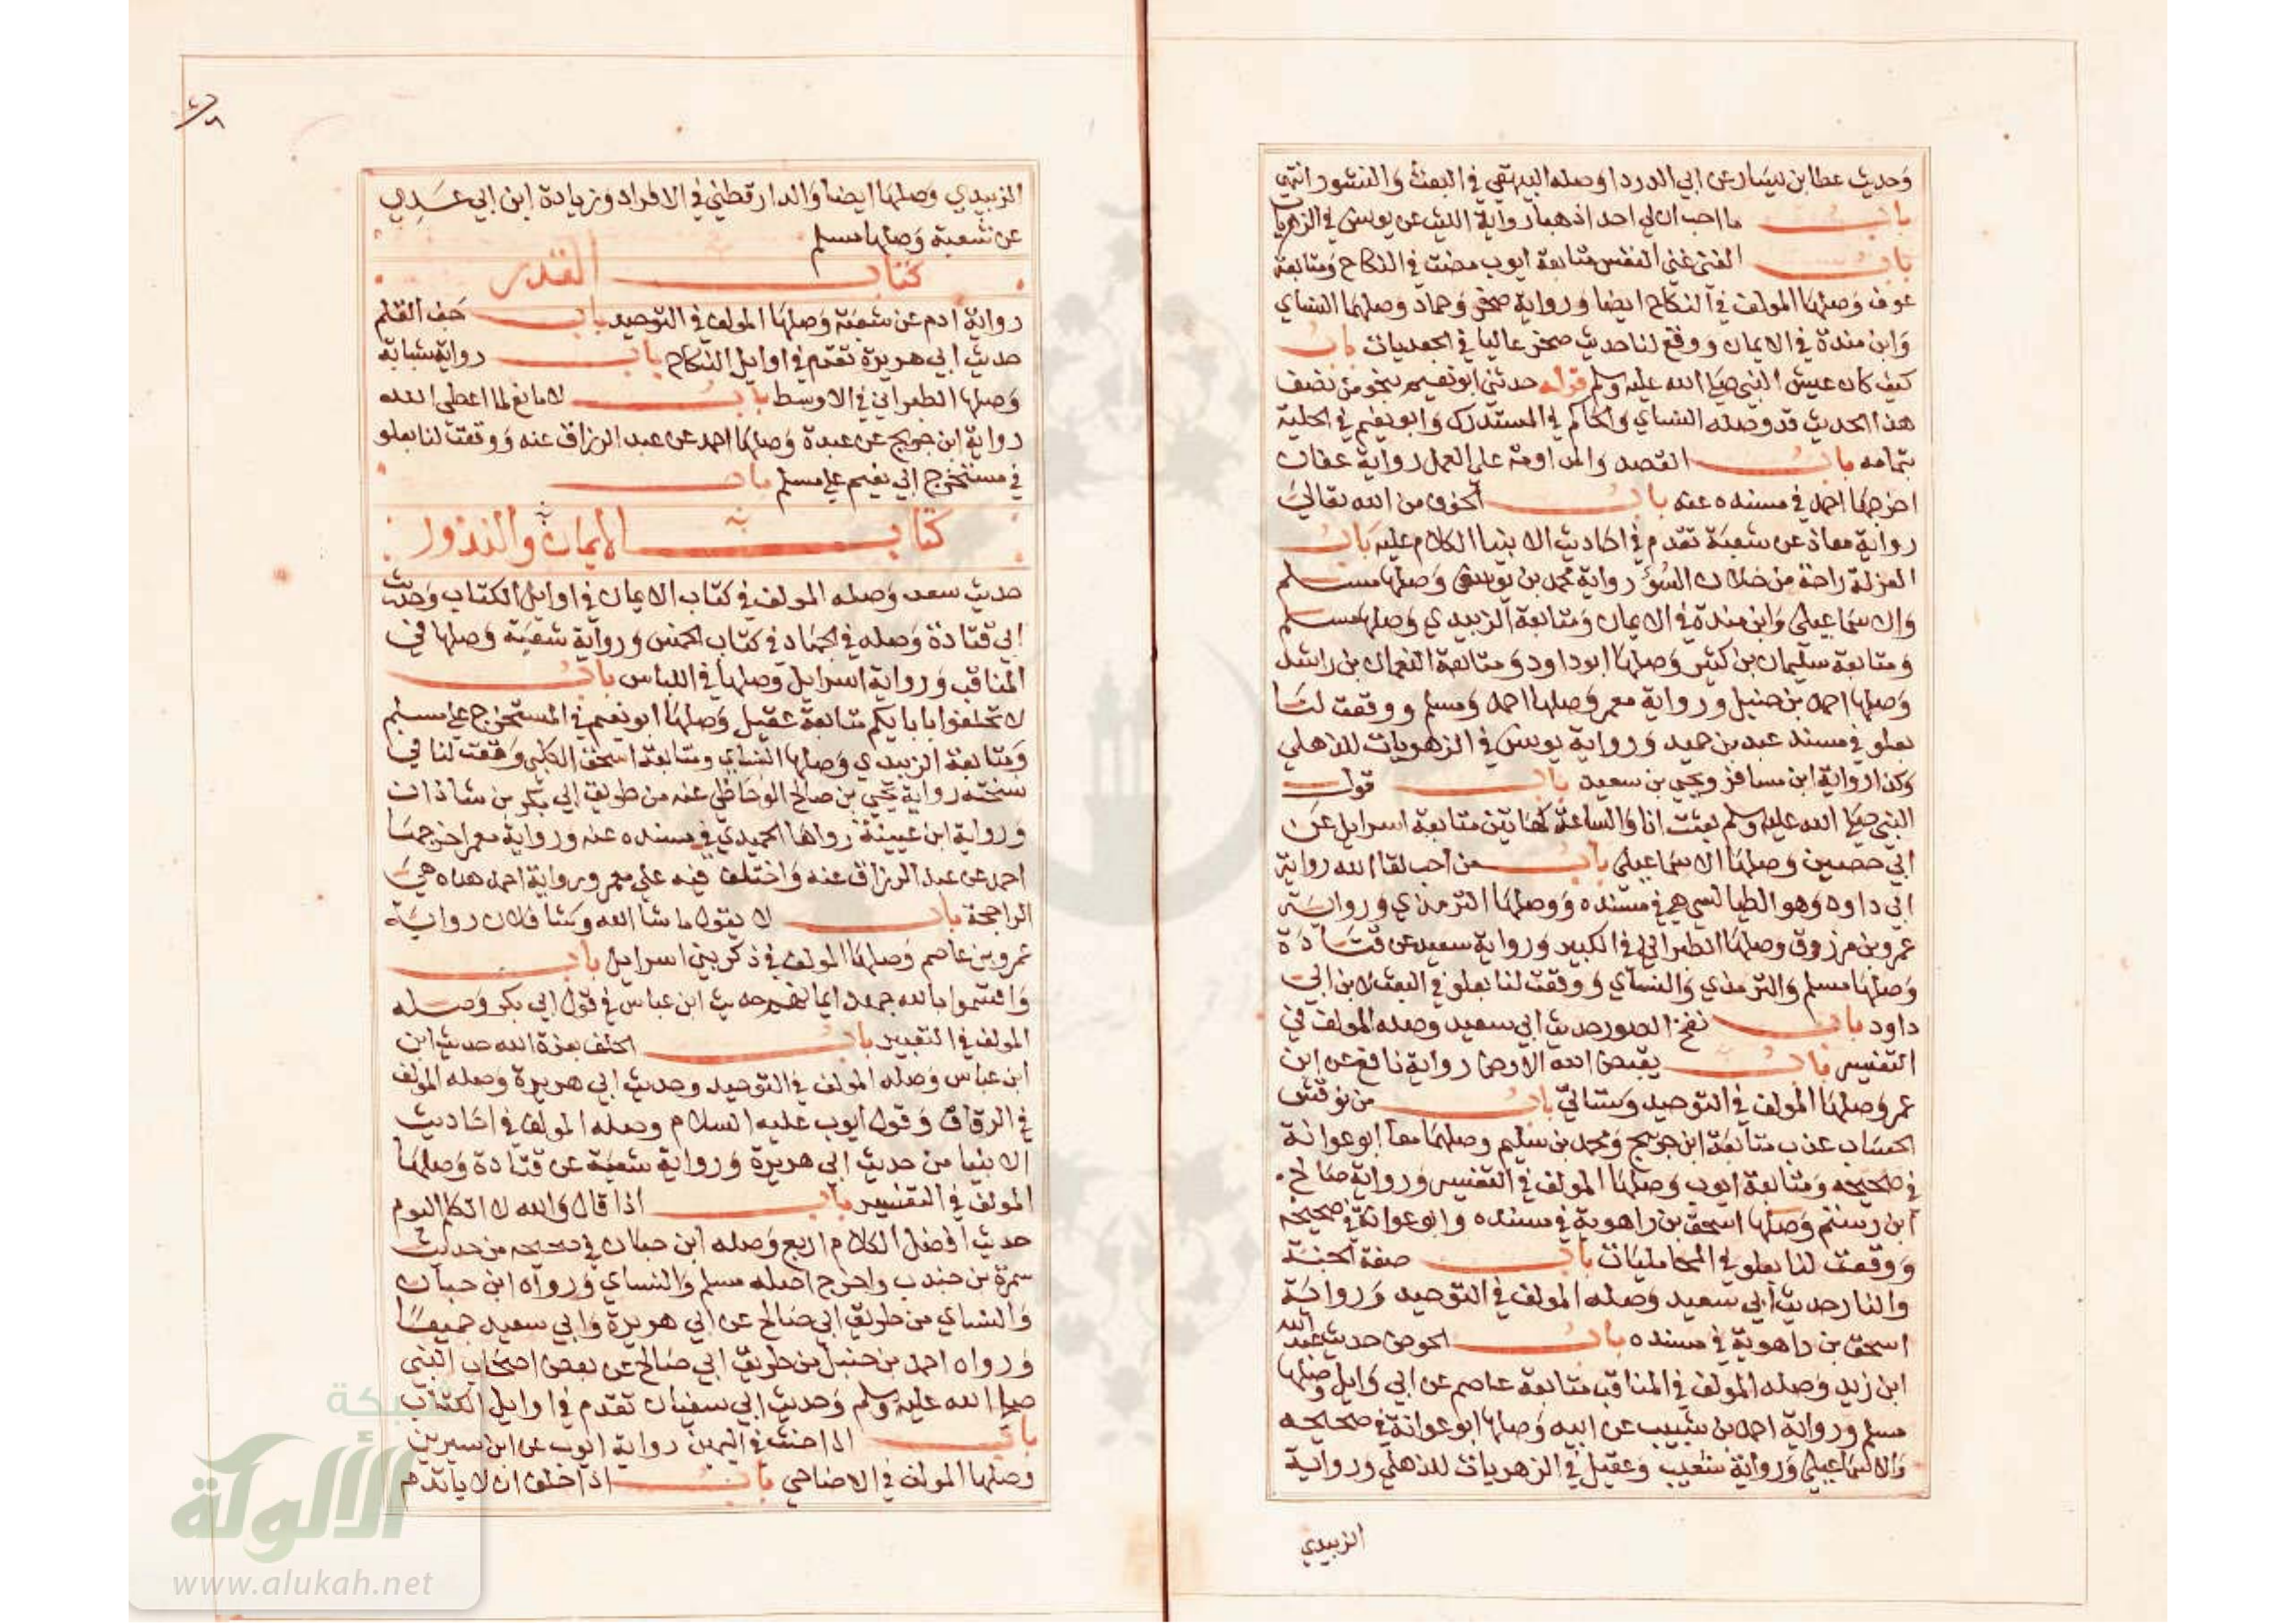 وحديث عطا بن يسار عن ابي الدردا وصله البيهقي في البعث والنشور انتهى
باب ما احب ان لي احد اذهبا رواية الليث عن يونس في الزهريات
باب الغنى غنى النفس متابعة ايوب مضت في النكاح ومتابعة
عوف وصلها المولف في النكاح ايضا ورواية صخر وحماد وصلهما النساي
وابن مندة في الايمان ووقع لنا حديث صخر عاليا في الجعديات باب
كيف كان عيش النبي صلى الله عليه وسلم قوله حدثني ابو نعيم بنحو من نصف
هذا الحديث قد وصله النساي والحاكم في المستدرك وابو نعيم في الحلية
بتمامه باب القصد والمداومة على العمل رواية عفان
اخرجها احمد في مسنده عنه باب الخوف من الله تعالى
رواية معاذ عن شعبة تقدم في احاديث الانبيا الكلام عليه باب
العزلة راحة من خلاط السوء رواية محمد بن يوسف وصلها مسلم
والاسماعيلي وابن مندة في الايمان ومتابعة الزبيدي وصلها مسلم
ومتابعة سليمان بن كثير وصلها ابو داود ومتابعة النعمان بن راشد
وصلها احمد بن حنبل ورواية معمر وصلها احمد ومسلم ووقعت لنا
بعلو في مسند عبد بن حميد ورواية يونس في الزهريات للذهلي
وكذا رواية ابن مسافر ويحيى بن سعيد باب قول
النبي صلى الله عليه وسلم بعثت انا والساعة كهاتين متابعة اسرايل عن
ابي حصين وصلها الاسماعيلي باب من احب لقا الله رواية
ابي داود وهو الطيالسي هي في مسنده ووصلها الترمذي ورواية
عمرو بن مرزوق وصلها الطبراني في الكبير ورواية سعيد عن قتادة
وصلها مسلم والترمذي والنساي ووقعت لنا بعلو في البعث لابن ابي
داود باب نفخ الصور حديث ابي سعيد وصله المولف في
التفسير باب يقبض الله الارض رواية نافع عن ابن
عمر وصلها المولف في التوحيد وستاتي باب من نوقش
الحساب عذب متابعة ابن جريج ومحمد بن سليم وصلهما معا ابو عوانة
في صحيحه ومتابعة ايوب وصلها المولف في التفسير ورواية صالح
ابن رستم وصلها اسحق بن راهوية في مسنده وابو عوانة في صحيحه
ووقعت لنا بعلو في المحامليات باب صفة الجنة
والنار حديث ابي سعيد وصله المولف في التوحيد ورواية
اسحق بن راهوية في مسنده باب الحوض حديث عبد الله
ابن زيد وصله المولف في المناقب متابعة عاصم عن ابي وايل وصلها
مسلم ورواية احمد بن شبيب عن ابيه وصلها ابو عوانة في صحيحه
والاسماعيلي ورواية شعيب وعقيل في الزهريات للذهلي ورواية
الزبيدي
الزبيدي وصلها ايضا والدارقطني في الافراد وزيادة ابن ابي عدي
عن شعبة وصلها مسلم
كتاب القدر
رواية ادم عن شعبة وصلها المولف في التوحيد باب جف القلم
حديث ابي هريرة تقدم في اوايل النكاح باب رواية شبابة
وصلها الطبراني في الاوسط باب لا مانع لما اعطى الله
رواية ابن جريج عن عبدة وصلها احمد عن عبد الرزاق عنه ووقعت لنا بعلو
في مستخرج ابي نعيم على مسلم باب
كتاب الايمان والنذور
حديث سعد وصله المولف في كتاب الايمان في اوايل الكتاب وحديث
ابي قتادة وصله في الجهاد في كتاب الخمس ورواية شعبة وصلها في
المناقب ورواية اسرايل وصلها في اللباس باب
لا تحلفوا بابايكم متابعة عقيل وصلها ابو نعيم في المستخرج على مسلم
ومتابعة الزبيدي وصلها النساي ومتابعة اسحق الكلبي وقعت لنا في
نسخته رواية يحيى بن صالح الوحاظي عنه من طريق ابي بكر بن شاذان
ورواية ابن عيينة رواها الحميدي في مسنده عنه ورواية معمر اخرجها
احمد عن عبد الرزاق عنه واختلف فيه على معمر ورواية احمد هذه هي
الراجحة باب لا يقول ما شا الله وشا فلان رواية
عمرو بن عاصم وصلها المولف في ذكر بني اسرايل باب
واقسموا بالله جهد ايمانهم حديث ابن عباس في قول ابي بكر وصله
المولف في التعبير باب الحلف بعزة الله حديث ابن
ابن عباس وصله المولف في التوحيد وحديث ابي هريرة وصله المولف
في الرقاق وقول ايوب عليه السلام وصله المولف في احاديث
الانبيا من حديث ابي هريرة ورواية شعبة عن قتادة وصلها
المولف في التفسير باب اذا قال والله لا اتكلم اليوم
حديث افضل الكلام اربع وصله ابن حبان في صحيحه من حديث
سمرة بن جندب واخرج اصله مسلم والنساي ورواه ابن حبان
والنساي من طريق ابي صالح عن ابي هريرة وابي سعيد جميعا
ورواه احمد بن حنبل من طريق ابي صالح عن بعض اصحاب النبي
صلى الله عليه وسلم وحديث ابي سفيان تقدم في اوايل الكتاب
باب اذا حنث في اليمين رواية ايوب عن ابن سيرين
وصلها المولف في الاضاحي باب اذا حلف ان لا ياتدم
شبكة
الألوكة
www.alukah.net